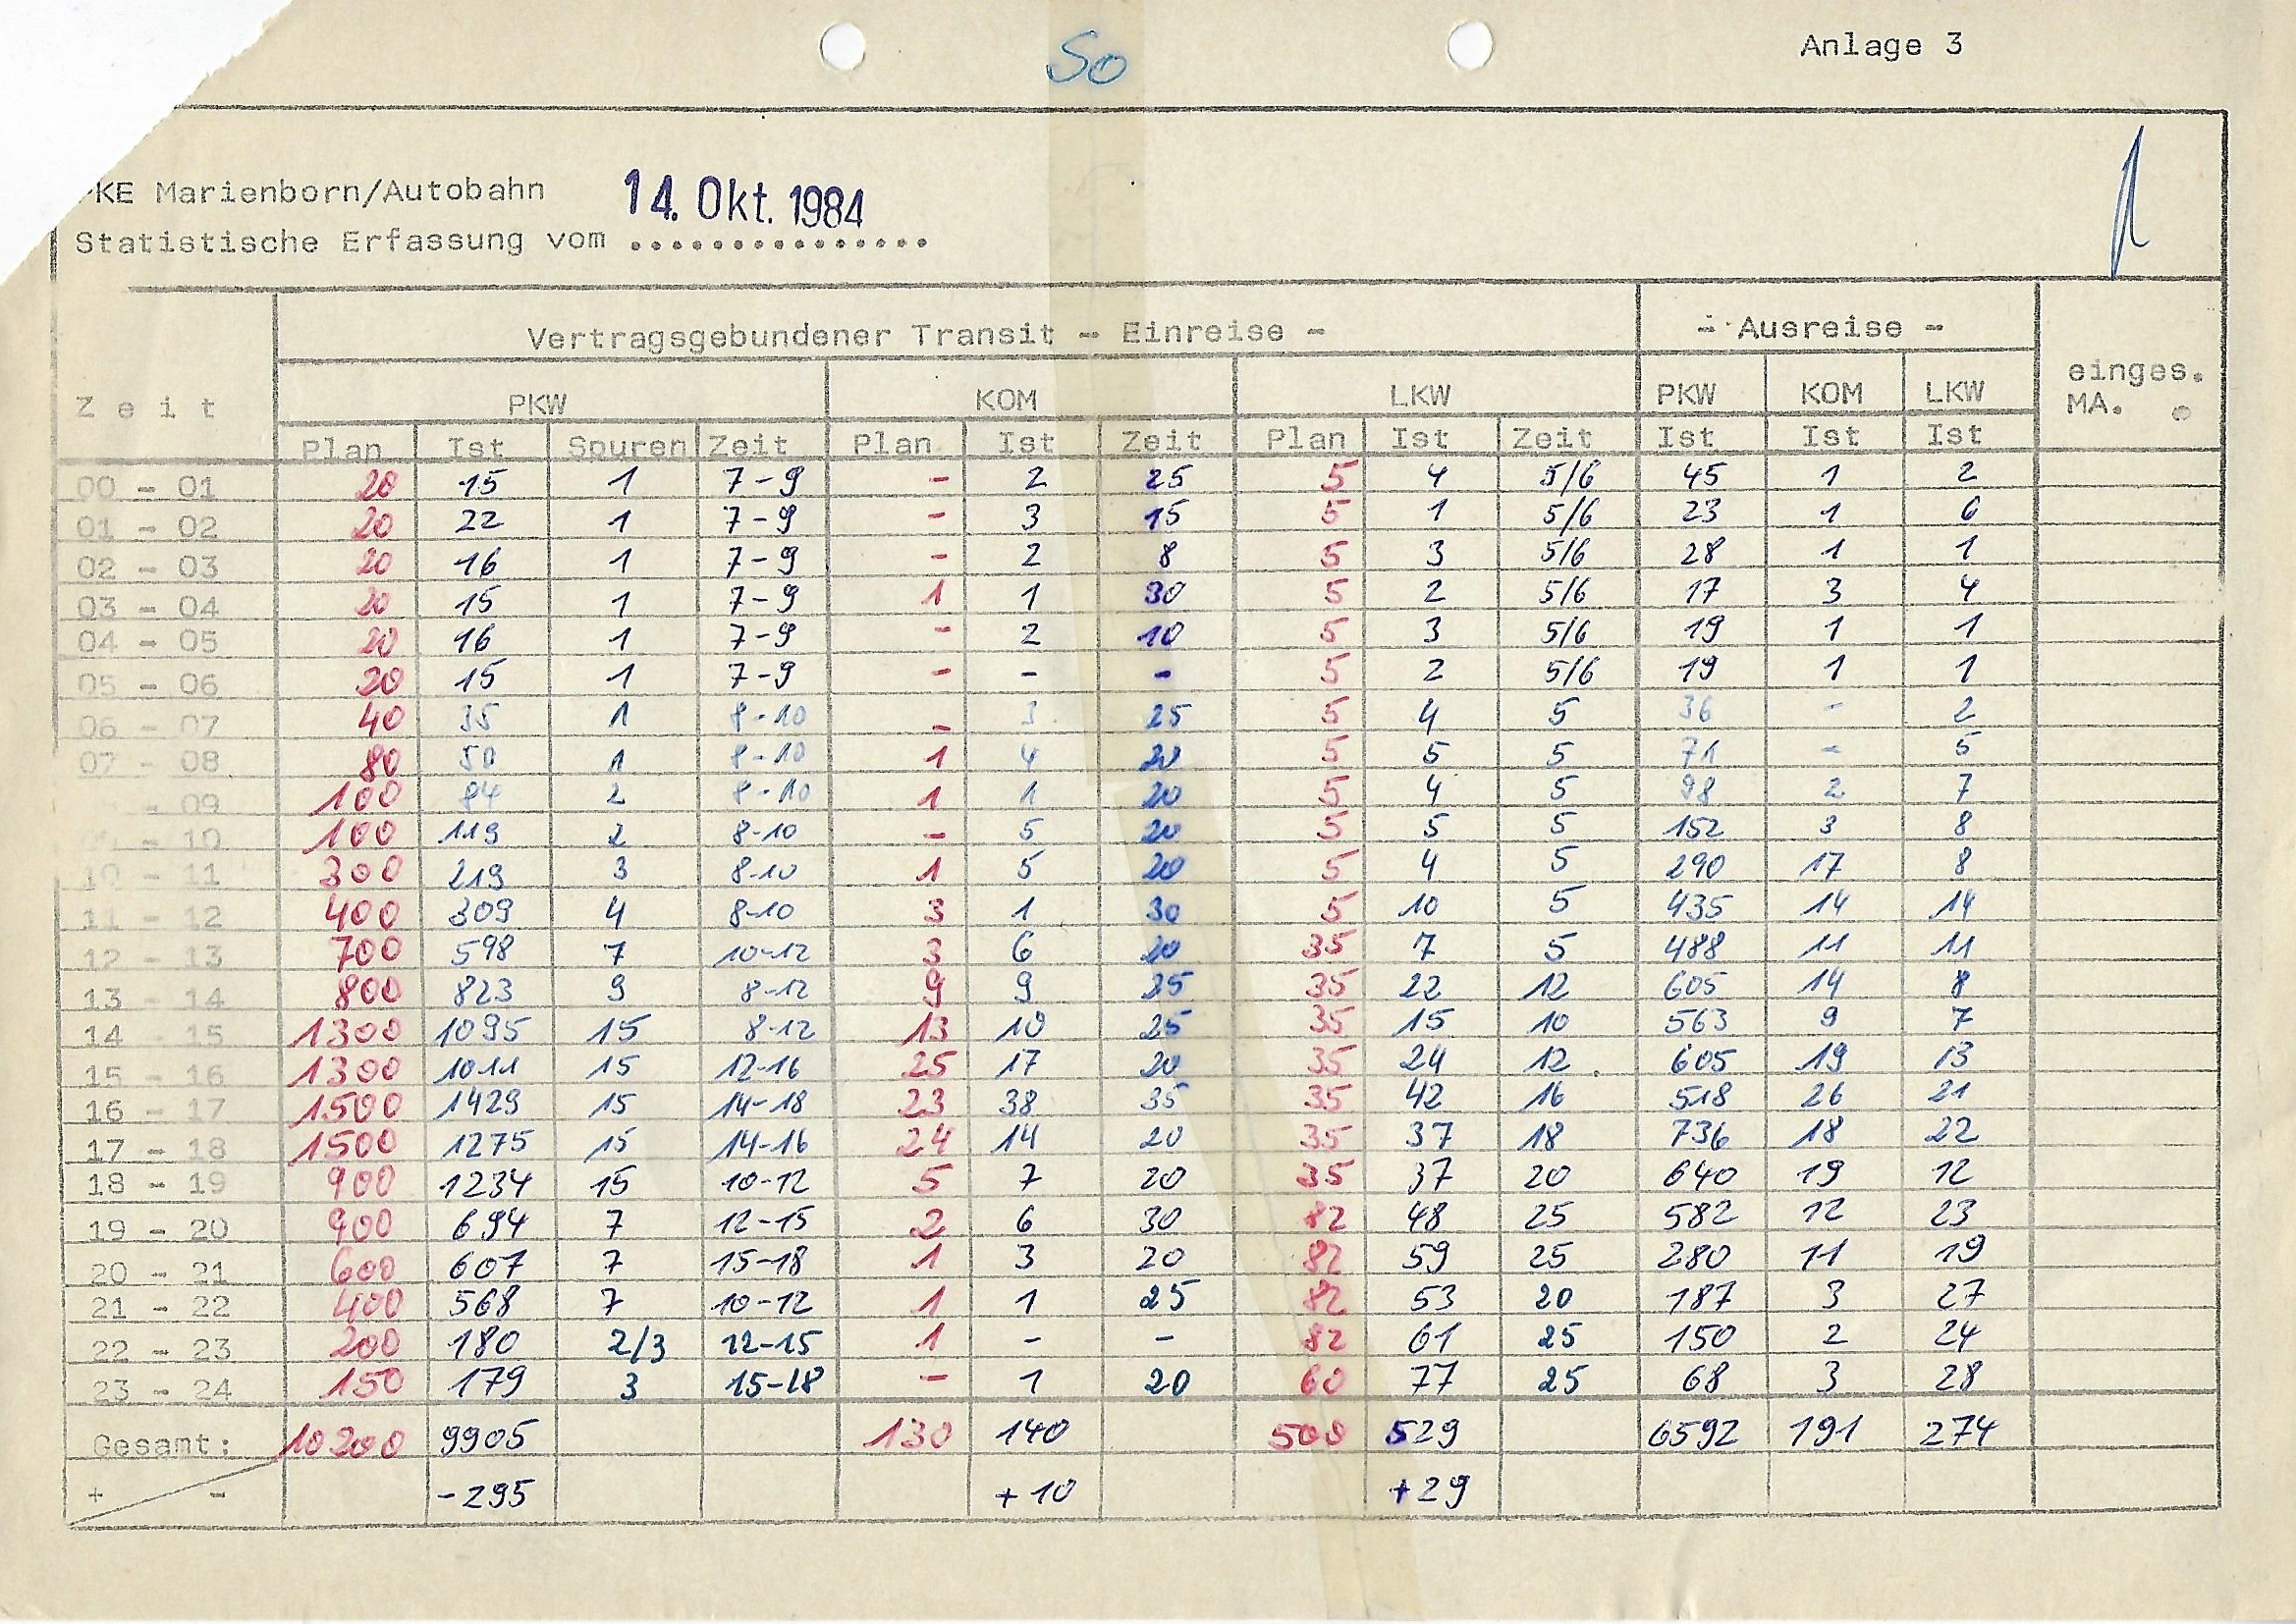 So
Anlage 3
PKE Marienborn/Autobahn 14. Okt. 1984
Statistische Erfassung vom ...............
Vertragsgebundener Transit - Einreise - - Ausreise -
Zeit PKW KOM LKW PKW KOM LKW einges. MA.
Plan Ist Spuren Zeit Plan Ist Zeit Plan Ist Zeit Ist Ist Ist
00 - 01 20 15 1 7-9 - 2 25 5 4 5/6 45 1 2
01 - 02 20 22 1 7-9 - 3 15 5 1 5/6 23 1 6
02 - 03 20 16 1 7-9 - 2 8 5 3 5/6 28 1 1
03 - 04 20 15 1 7-9 1 1 30 5 2 5/6 17 3 4
04 - 05 20 16 1 7-9 - 2 10 5 3 5/6 19 1 1
05 - 06 20 15 1 7-9 - - - 5 2 5/6 19 1 1
06 - 07 40 35 1 8-10 - 3 25 5 4 5 36 - 2
07 - 08 80 50 1 8-10 1 4 20 5 5 5 71 - 5
- 09 100 84 2 8-10 1 1 20 5 4 5 98 2 7
- 10 100 119 2 8-10 - 5 20 5 5 5 152 3 8
10 - 11 300 219 3 8-10 1 5 20 5 4 5 290 17 8
11 - 12 400 309 4 8-10 3 1 30 5 10 5 435 14 14
12 - 13 700 598 7 10-12 3 6 20 35 7 5 488 11 11
13 - 14 800 823 9 8-12 9 9 25 35 22 12 605 14 8
14 - 15 1300 1095 15 8-12 13 10 25 35 15 10 563 9 7
15 - 16 1300 1011 15 12-16 25 17 20 35 24 12 605 19 13
16 - 17 1500 1429 15 14-18 23 38 35 35 42 16 518 26 21
17 - 18 1500 1275 15 14-16 24 14 20 35 37 18 736 18 22
18 - 19 900 1234 15 10-12 5 7 20 35 37 20 640 19 12
19 - 20 900 694 7 12-15 2 6 30 82 48 25 582 12 23
20 - 21 600 607 7 15-18 1 3 20 82 59 25 280 11 19
21 - 22 400 568 7 10-12 1 1 25 82 53 20 187 3 27
22 - 23 200 180 2/3 12-15 1 - - 82 61 25 150 2 24
23 - 24 150 179 3 15-18 - 1 20 60 77 25 68 3 28
Gesamt: 10200 9905 130 140 500 529 6592 191 274
+ - -295 +10 +29